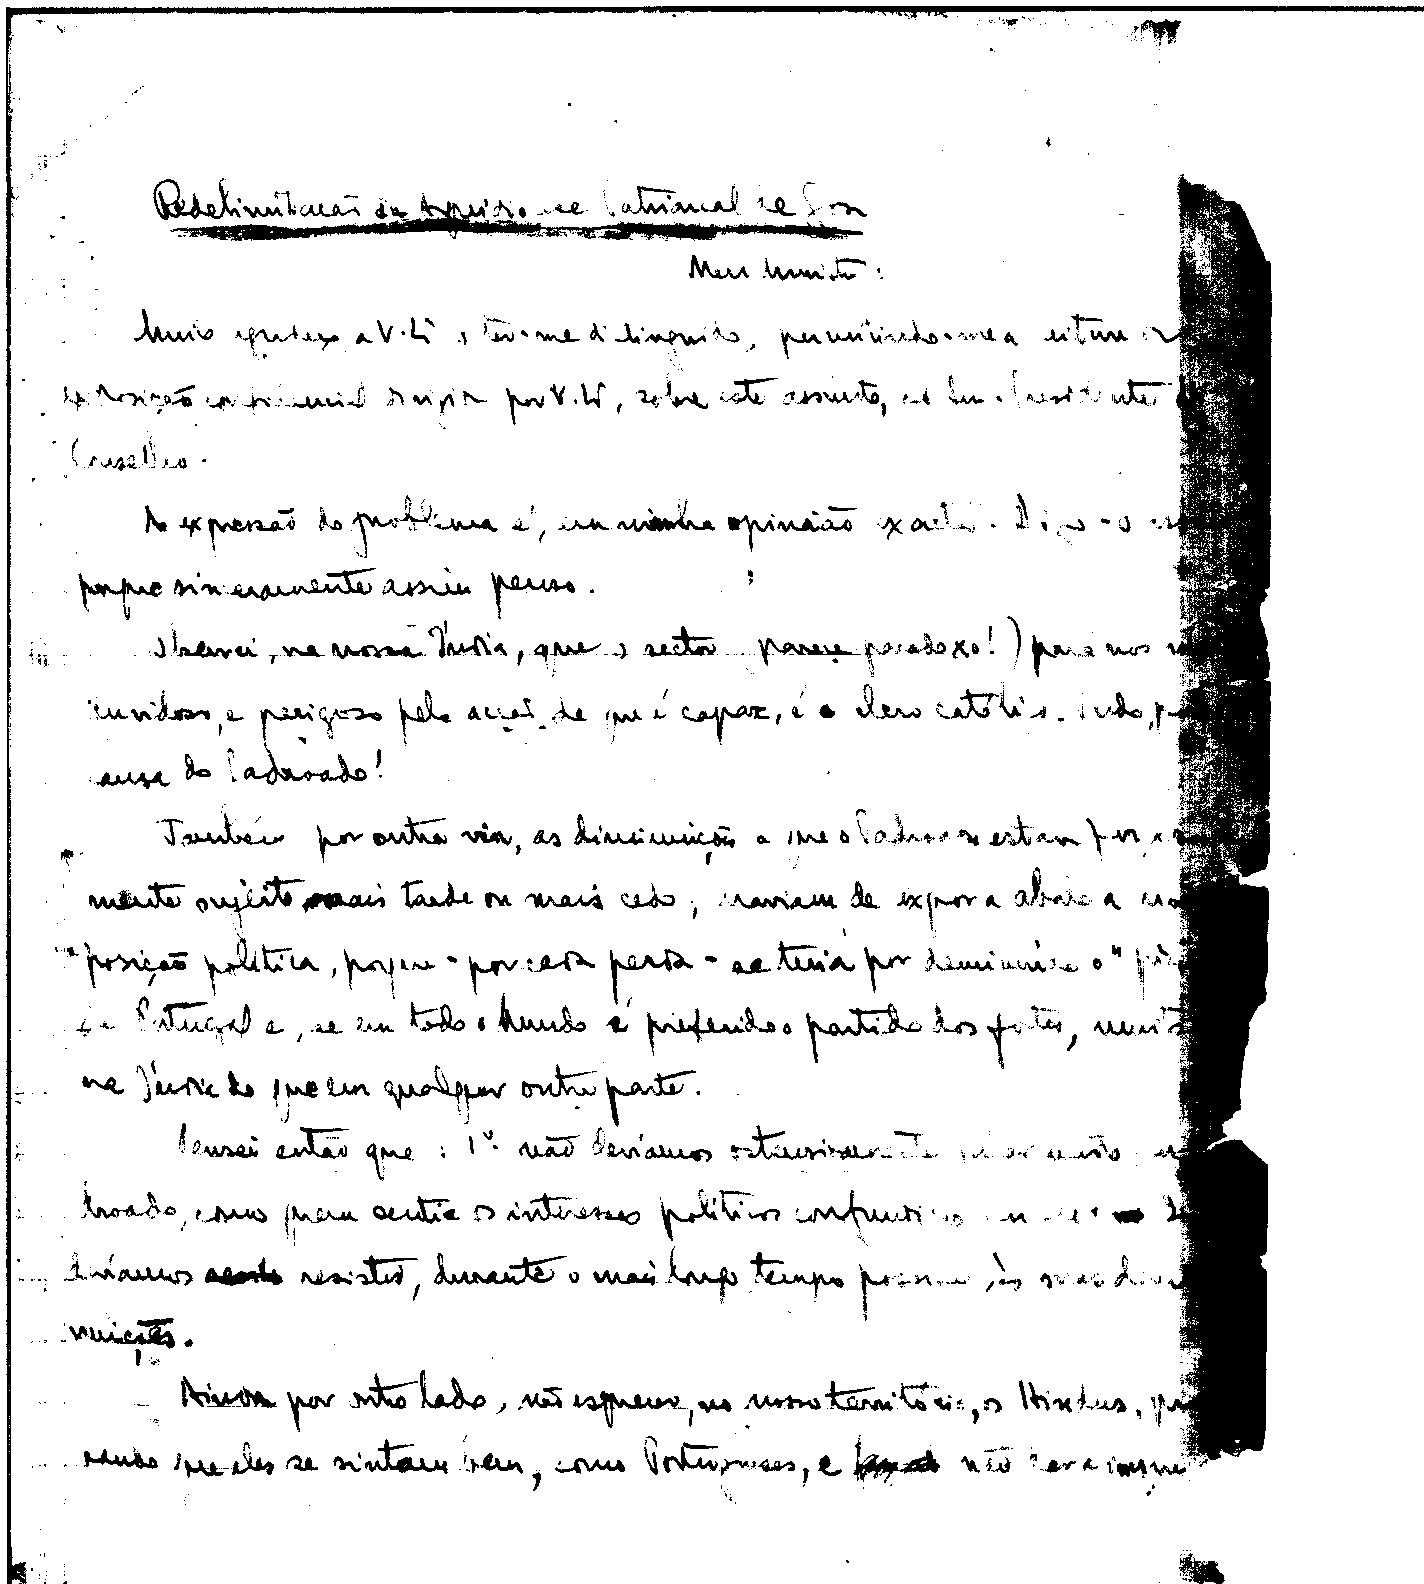 Redelimitação da Arquidiocese Patriarcal de Goa
Meu Ministro:
Muito agradeço a V. Exª o ter-me distinguido, permitindo-me a leitura da
exposição confidencial dirigida por V. Exª, sobre este assunto, ao Sr. Presidente
Conselho.
A expressão do problema é, em minha opinião exacta. Digo-o
porque sinceramente assim penso.
Observei, na nossa Índia, que o sector parece paradoxo!) para nos
duvidoso, e perigoso pela acção de que é capaz, é o clero católico. Tudo,
causa do Padroado!
Também por outra via, as diminuições a que o Padroado estava
mente sujeito mais tarde ou mais cedo, haviam de expor a abalo a
posição política, porque - por cada perda - se teria por diminuído o "
de Portugal e, se em todo o Mundo é preferido o partido dos fortes,
na Índia do que em qualquer outra parte.
Pensei então que: 1º não devíamos ostensivamente
droado, como quem sentia os interesses políticos confundidos
devíamos resistir, durante o mais longo tempo possível, às suas
nuições.
Ainda por outro lado, não esqueço, no nosso território, os Hindus,
rando que eles se sintam bem, como Portugueses, e não